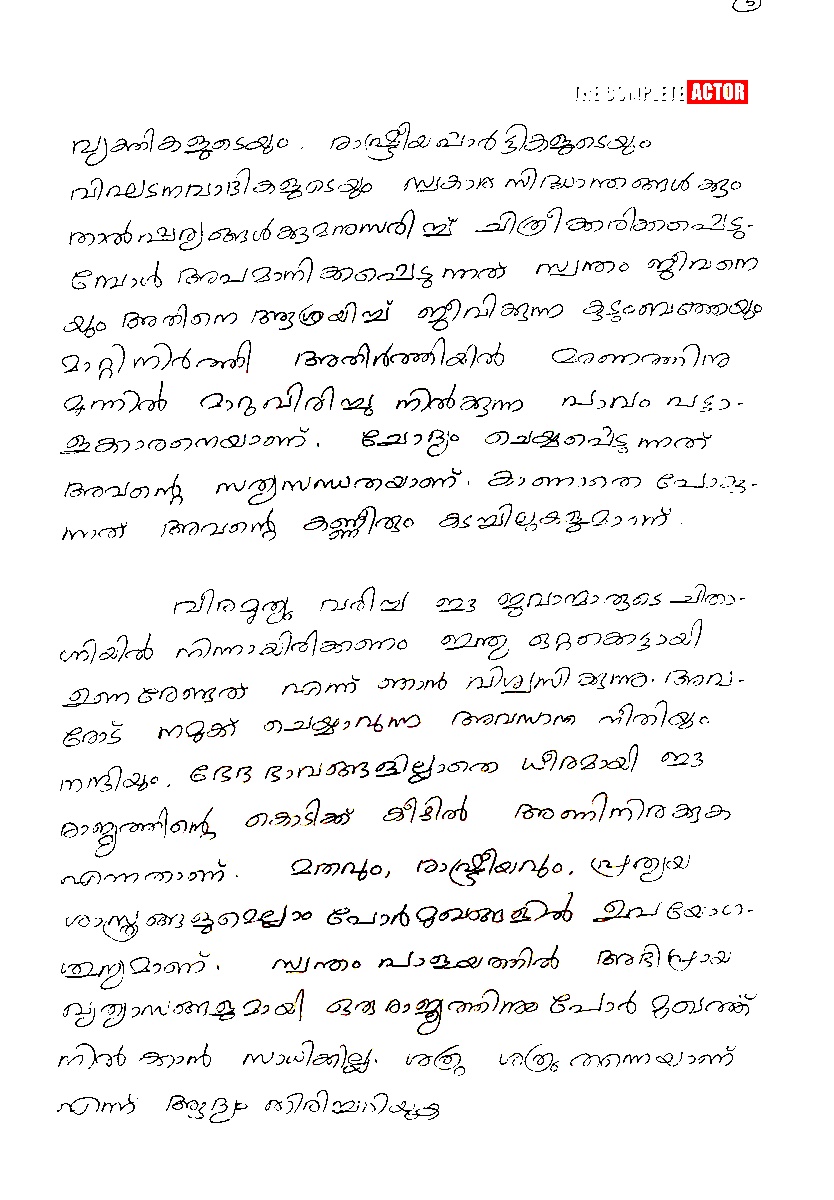 5
THE COMPLETE ACTOR
വ്യക്തികളുടെയും, രാഷ്ട്രീയപാർട്ടികളുടെയും
വിഘടനവാദികളുടെയും സ്വകാര്യ സിദ്ധാന്തങ്ങൾക്കും
താൽപര്യങ്ങൾക്കുമനുസരിച്ച് ചിത്രീകരിക്കപ്പെടു-
മ്പോൾ അപമാനിക്കപ്പെടുന്നത് സ്വന്തം ജീവനെ
യും അതിനെ ആശ്രയിച്ച് ജീവിക്കുന്ന കുടുംബത്തേയും
മാറ്റിനിർത്തി അതിർത്തിയിൽ മരണത്തിനു
മുന്നിൽ മാറുവിരിച്ചു നിൽക്കുന്ന പാവം പട്ടാ-
ളക്കാരനെയാണ്. ചോദ്യം ചെയ്യപ്പെടുന്നത്
അവന്റെ സത്യസന്ധതയാണ്. കാണാതെ പോകു-
ന്നത് അവന്റെ കണ്ണീരും കടച്ചിലുകളുമാണ്.
വീരമൃത്യു വരിച്ച ഈ ജവാന്മാരുടെ ചിതാ-
ഗ്നിയിൽ നിന്നായിരിക്കണം ഇന്ത്യ ഒറ്റക്കെട്ടായി
ഉണരേണ്ടത് എന്ന് ഞാൻ വിശ്വസിക്കുന്നു. അവ-
രോട് നമുക്ക് ചെയ്യാവുന്ന അവസാന നീതിയും
നന്ദിയും, ഭേദഭാവങ്ങളില്ലാതെ ധീരമായി ഈ
രാജ്യത്തിന്റെ കൊടിക്ക് കീഴിൽ അണിനിരക്കുക
എന്നതാണ്. മതവും, രാഷ്ട്രീയവും, പ്രത്യയ
ശാസ്ത്രങ്ങളുമെല്ലാം പോർമുഖങ്ങളിൽ ഉപയോഗ-
ശൂന്യമാണ്. സ്വന്തം പാളയത്തിൽ അഭിപ്രായ
വ്യത്യാസങ്ങളുമായി ഒരു രാജ്യത്തിനും പോർമുഖത്ത്
നിൽക്കാൻ സാധിക്കില്ല. ശത്രു ശത്രു തന്നെയാണ്
എന്ന് ആദ്യം തിരിച്ചറിയുക